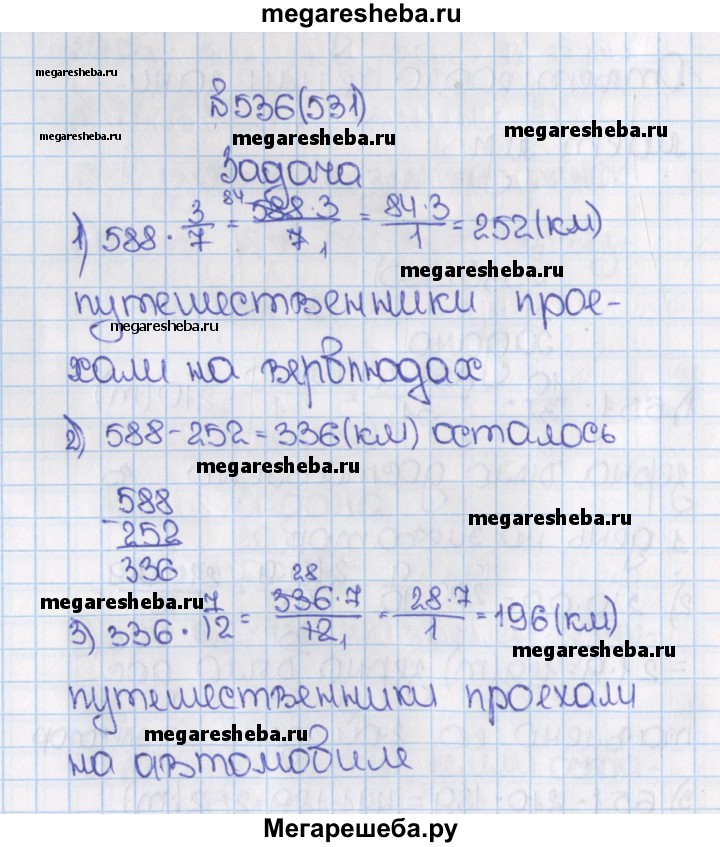 megaresheba.ru
megaresheba.ru
№536(531)
megaresheba.ru megaresheba.ru megaresheba.ru
Задача
1) 588 · 3/7 = 84 588·3/7 1 = 84·3/1 = 252(км)
megaresheba.ru
путешественники прое-
megaresheba.ru
хали на верблюдах
2) 588-252=336(км) осталось
megaresheba.ru
588
megaresheba.ru
-252
336
megaresheba.ru
3) 336 · 7/12 = 28 336·7/12 1 = 28·7/1 = 196(км)
megaresheba.ru
путешественники проехали
megaresheba.ru
на автомобиле
Мегарешеба.ру